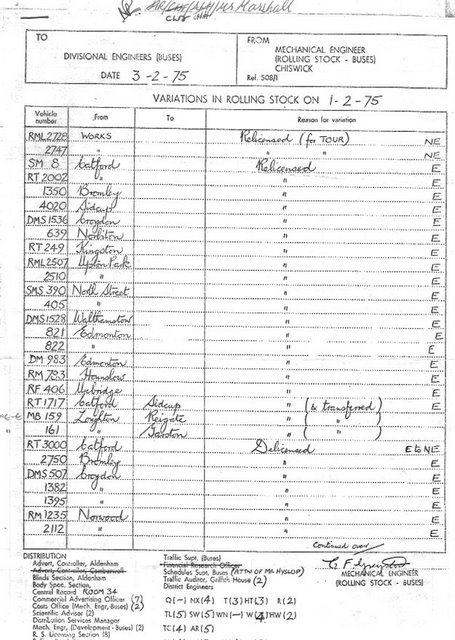 Mr Marshall
TO
DIVISIONAL ENGINEERS (BUSES)
DATE 3-2-75
FROM
MECHANICAL ENGINEER
(ROLLING STOCK - BUSES)
CHISWICK
Ref. 508/1
VARIATIONS IN ROLLING STOCK ON 1-2-75
Vehicle number From To Reason for variation
RML 2728 WORKS Relicensed (for TOUR) NE
2747 " " " NE
SM 8 Catford Relicensed E
RT 2002 " " E
1350 Bromley " E
4020 Sidcup " E
DMS 1536 Croydon " E
639 Norbiton " E
RT 249 Kingston " E
RML 2507 Upton Park " E
2510 " " E
SMS 390 North Street " E
405 " " E
DMS 1528 Walthamstow " E
821 Edmonton " E
822 " " E
DM 983 Edmonton " E
RM 783 Hounslow " E
RF 406 Uxbridge " E
RT 1717 Catford Sidcup " (& transferred) E
MB 159 Leyton Reigate " ( " ) E
161 " Garston " ( " ) E
RT 3000 Catford Delicensed E to NE
2750 Bromley " E
DMS 507 Croydon " E
1382 " " E
1395 " " E
RM 1235 Norwood " E
2112 " " E
Continued over
MECHANICAL ENGINEER
(ROLLING STOCK - BUSES)
DISTRIBUTION
Advert, Controller, Aldenham
Advert, Controller, Camberwell
Blinds Section, Aldenham
Body Spec. Section,
Central Record ROOM 34
Commercial Advertising Officer (7)
Costs Office (Mech. Engr, Buses) (2)
Scientific Adviser (2)
Distribution Services Manager
Mech. Engr, (Development - Buses) (2)
R. S. Licensing Section (8)
Traffic Supt, (Buses)
Financial Research Officer
Schedules Supt, Buses (ATTN OF MR HYSLOP)
Traffic Auditor, Griffith House (2)
District Engineers
Q(-) NX(4) T(3) HT(3) R(2)
TL(5) SW(5) WN(-) W(4) HW(2)
TC(4) AR(5)